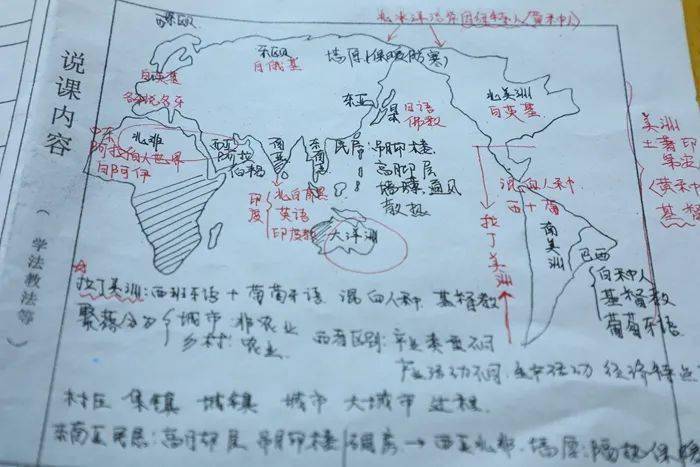 说课内容
(学法教法等)
北冰洋沿岸因纽特人(黄种人)
西欧
东欧
白俄基
墙厚(保暖防寒)
白英基
各种说各乐
东亚
日语
佛教
北美洲
白英基
美洲
土著印
第安
(黄种人
基督
中东
阿拉伯人世界
白阿伊
北非
西亚
阿拉
伯语
南亚
东南亚
民居
吊脚楼
高脚层
墙矮,通风
散热
印度
北白南黑
英语
印度教
大洋洲
混血人种
西+葡
拉丁美洲
南美洲
巴西
白种人
基督教
葡萄牙语
拉丁美洲:西班牙语+葡萄牙语 混血人种 基督教
聚落分为 城市:非农业
乡村:农业
两者区别:产业类型不同
产业活动不同,
村庄 集镇 城镇 城市 大城市 过程
东南亚民居:高脚层 吊脚楼 西亚北非 墙厚:隔热保